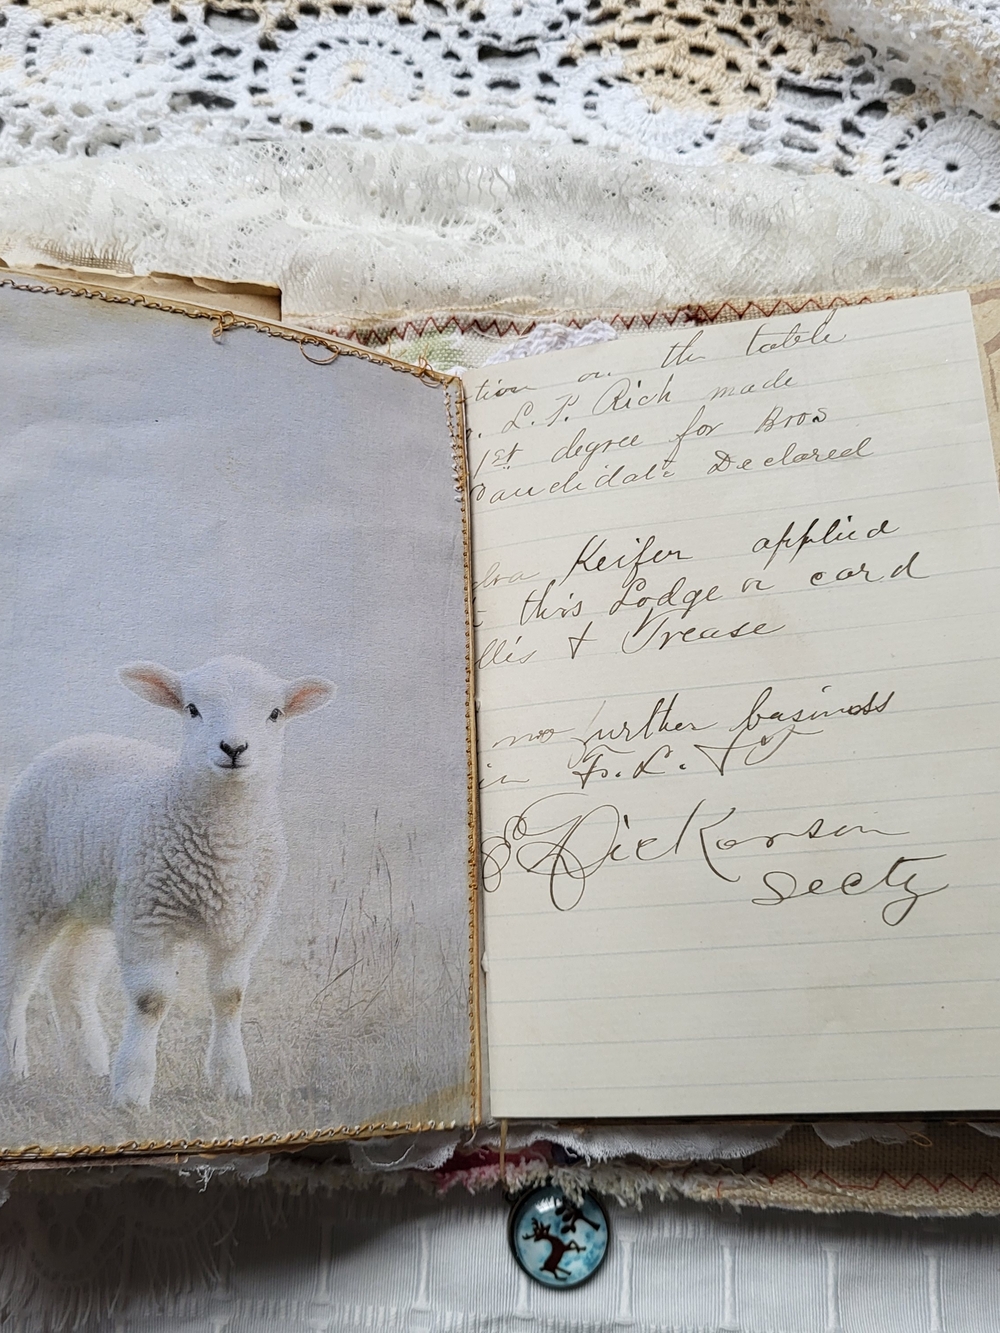 tion on the table
. L. P. Rich made
1st degree for Bros
Candidate Declared
Keifer applied
this Lodge on card
llis & Trease
no further business
in F. L. & T
E Dickerson
Secty